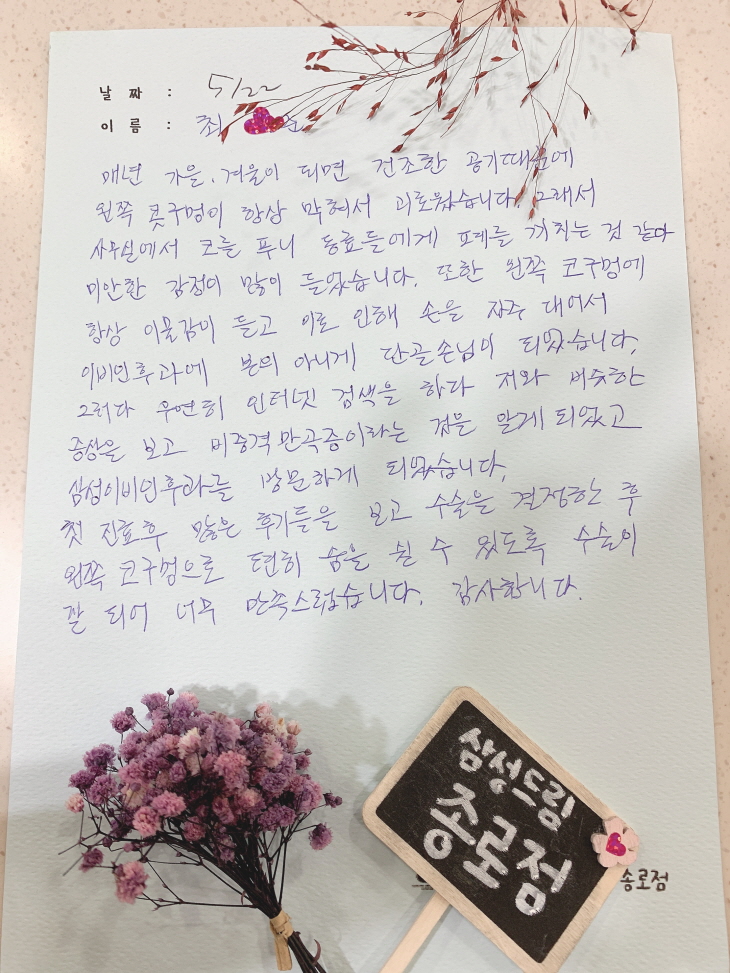 날 짜 : 5/22
이 름 : 최
매년 가을, 겨울이 되면 건조한 공기때문에
왼쪽 콧구멍이 항상 막혀서 괴로웠습니다. 그래서
사무실에서 코를 푸니 동료들에게 폐를 끼치는 것 같아
미안한 감정이 많이 들었습니다. 또한 왼쪽 코구멍에
항상 이물감이 들고 이로 인해 손을 자주 대어서
이비인후과에 본의 아니게 단골손님이 되었습니다.
그러다 우연히 인터넷 검색을 하다 저와 비슷한
증상을 보고 비중격만곡증이라는 것을 알게 되었고
삼성이비인후과를 방문하게 되었습니다.
첫 진료후 많은 후기들을 보고 수술을 결정한 후
왼쪽 코구멍으로 편히 숨을 쉴 수 있도록 수술이
잘 되어 너무 만족스럽습니다. 감사합니다.
삼성드림
종로점
종로점